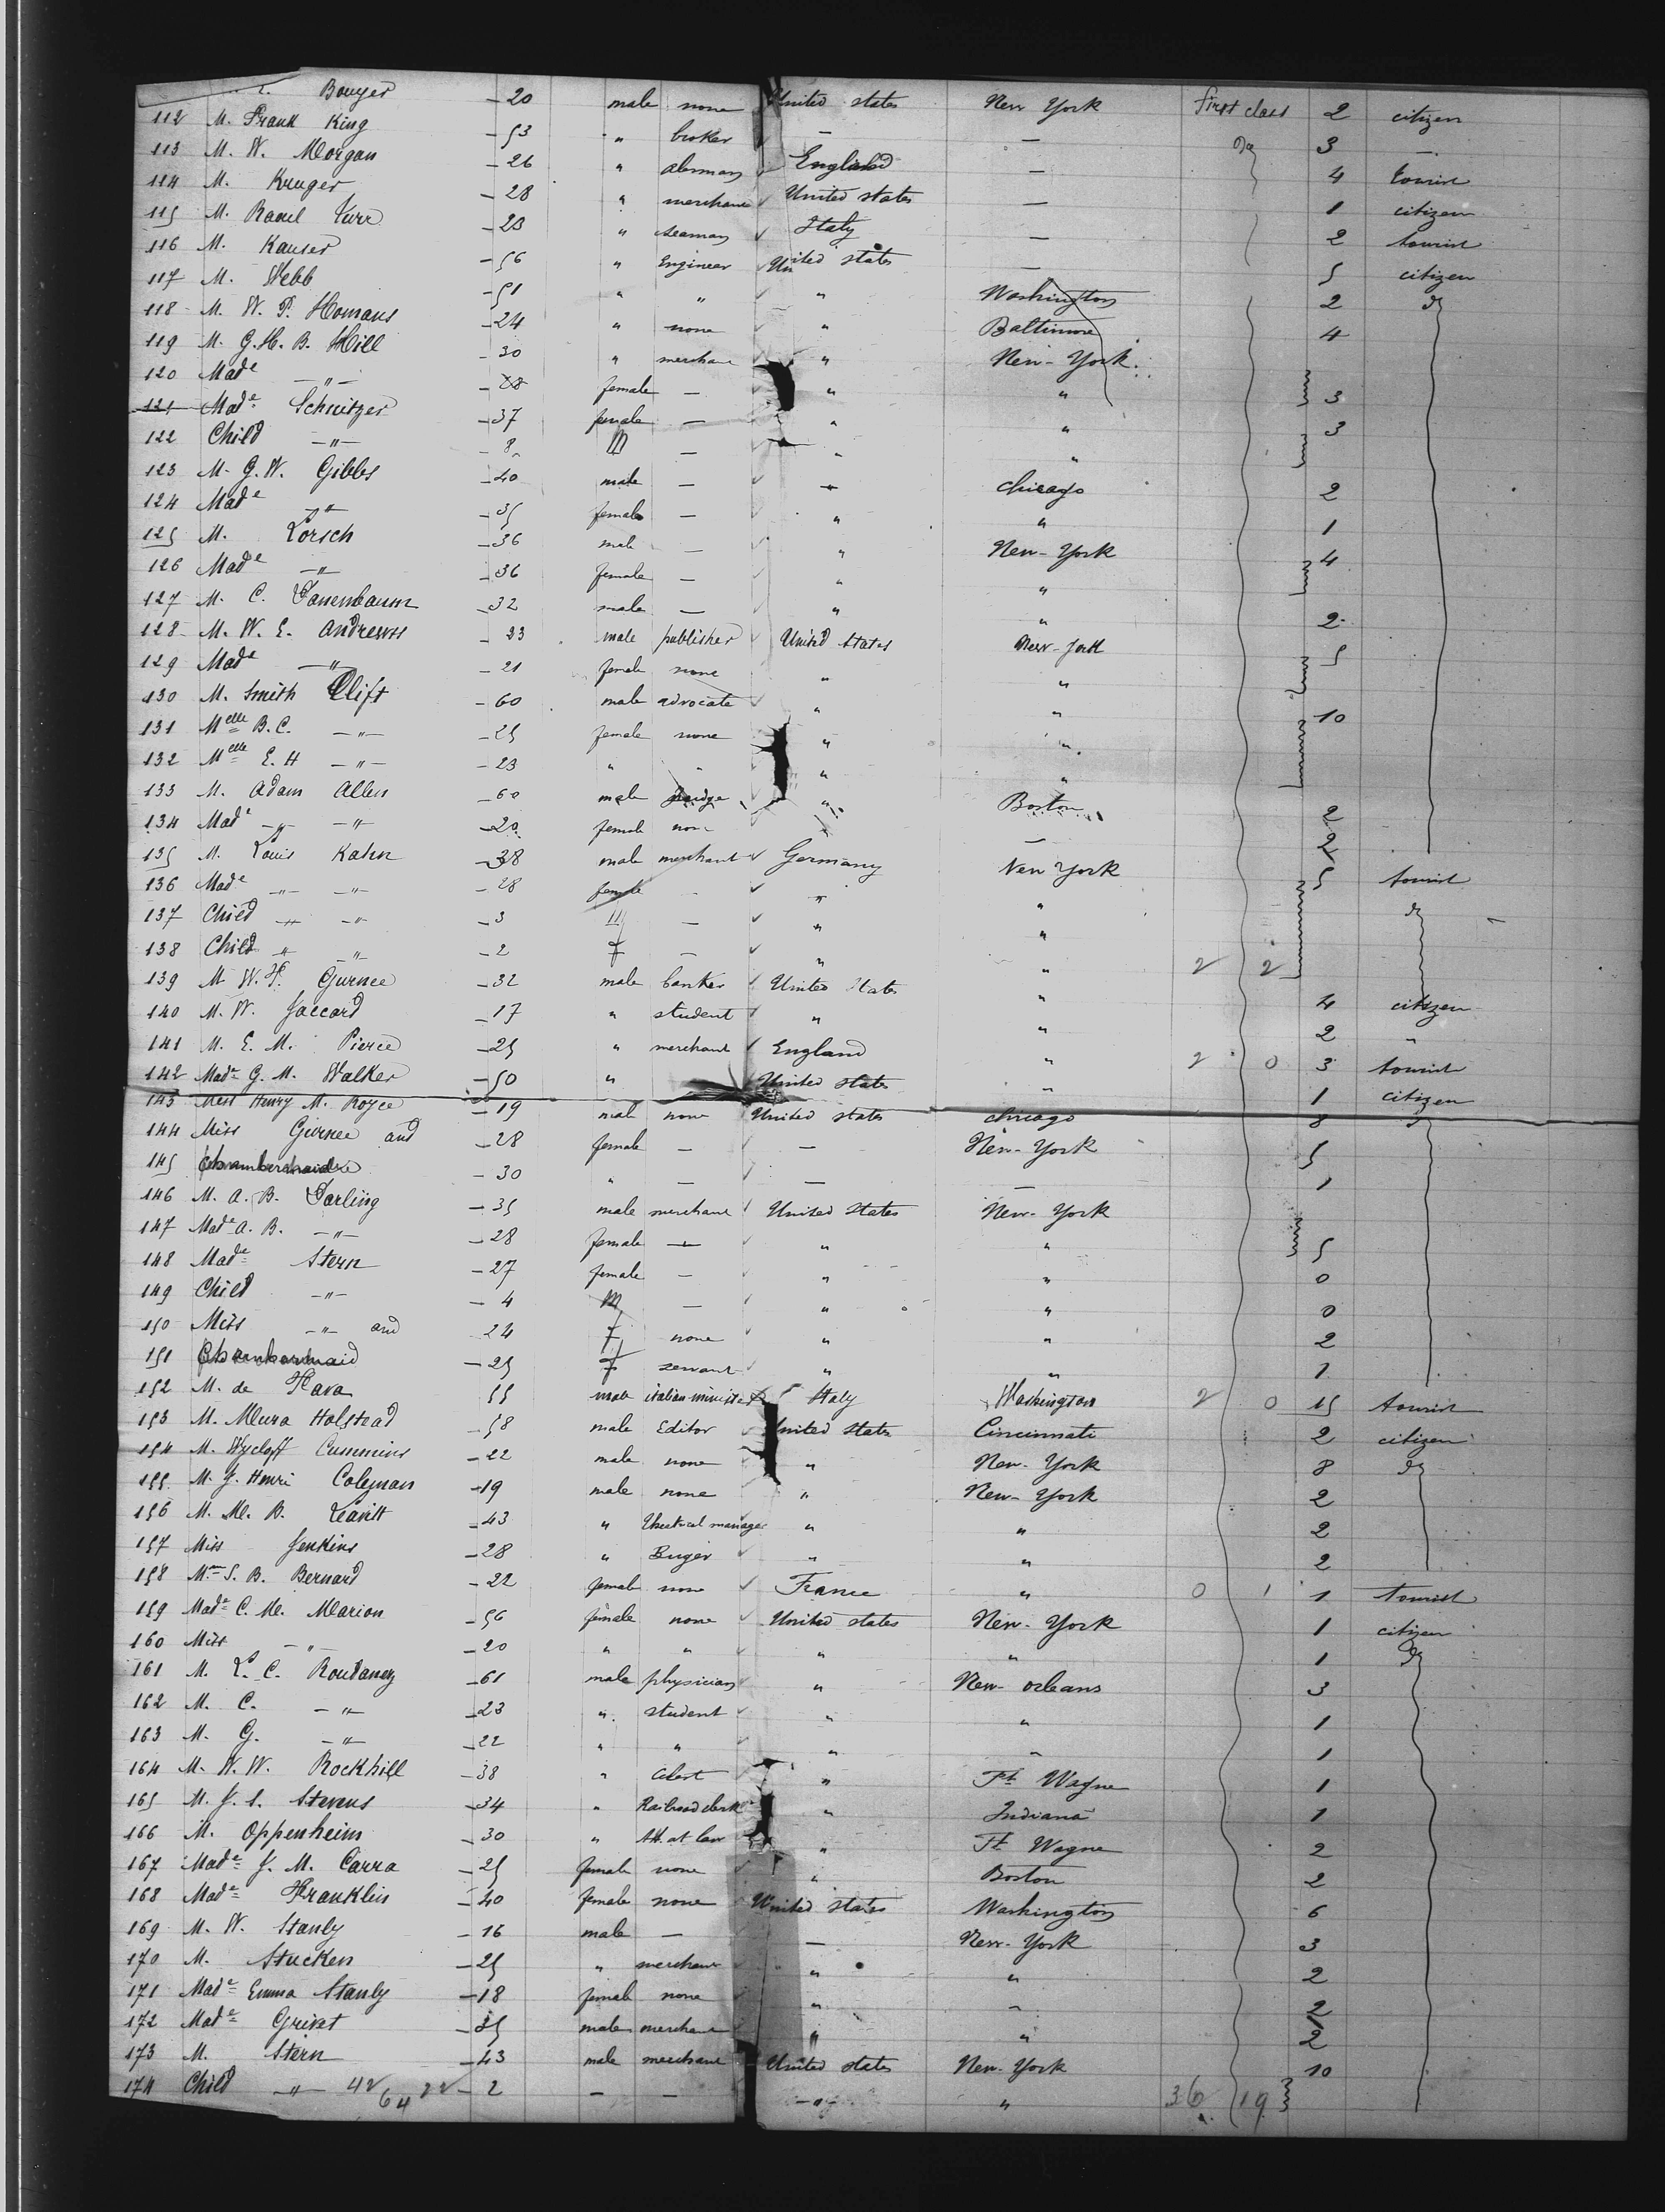 Bouyer - 20 male none United states New York first class 2 citizen
112 M. Frank King - 53 " broker — — do 3 —
113 M. W. Morgan - 26 " England — 4 tourist
114 M. Kruger - 28 " merchant United states — 1 citizen
115 M. Raoul Turr - 23 " seaman Italy — 2 tourist
116 M. Kauser - 56 " Engineer United states — 5 citizen
117 M. Webb - 51 " " " Washington 2 do
118 M. W. P. Homans - 24 " none " Baltimore 4
119 M. G. H. B. Hill - 30 " merchant " New-York
120 Made —"— - 28 female — " " 3
121 Made Schnitzer - 37 female — " " 3
122 Child —"— - 8 M — " "
123 M. G. W. Gibbs - 40 male — " Chicago 2
124 Made —"— - 35 female — " " 1
125 M. Lorsch - 36 male — " New-York 4
126 Made —"— - 36 female — " "
127 M. C. Tanenbaum - 32 male — " " 2
128 M. W. E. Andrews - 23 male publisher United States New-York 5
129 Made —"— - 21 female none " "
130 M. Smith Clift - 60 male advocate " " 10
131 Melle B. C. —"— - 25 female none " "
132 Melle E. H —"— - 23 " " " "
133 M. Adam Allen - 60 male " Boston 2
134 Made —"— —"— - 20 female none — 2
135 M. Louis Kahn - 38 male merchant Germany New York 5 tourist
136 Made —"— —"— - 28 female " " do
137 Child —"— —"— - 3 — " "
138 Child " —"— - 2 f — " " 2 2
139 M W. F. Gurnee - 32 male banker United States " 4 citizen
140 M. W. Jaccard - 17 " student " " 2 "
141 M. E. M. Pierce - 25 " merchant England " 2 0 3 tourist
142 Made G. M. Walker - 50 " United states " 1 citizen
143 Henry M. Royce - 19 male none United states Chicago 8 do
144 Miss Gurnee and - 28 female — — New-York 5
145 Chambermaid - 30 " — — — 1
146 M. A. B. Darling - 35 male merchant United States New-York
147 Made A. B. —"— - 28 female — " " 5
148 Made Stern - 27 female — " " 0
149 Child —"— - 4 M — " " 0
150 Miss —"— and 24 f none " " 2
151 Chambermaid - 25 f servant " " 1
152 M. de Fava 55 male italian minister Italy Washington 2 0 15 tourist
153 M. Mura Halstead - 58 male Editor United States Cincinnati 2 citizen
154 M. Wycloff Cummins - 22 male none " New-York 8 do
155 M. J. Henri Coleman - 19 male none " New-York 2
156 M. M. B. Leavitt - 43 " Theatrical manager " " 2
157 Miss Jenkins - 28 " " " 2
158 S. B. Bernard - 22 female none France " 0 1 1 tourist
159 Made C. M. Marion - 56 female none United states New-York 1 citizen
160 Miss —"— - 20 " " " " 1 do
161 M. L. C. Roudaney - 61 male physician " New-orleans 3
162 M. C. —"— - 23 " student " " 1
163 M. G. —"— - 22 " " " " 1
164 M. W. W. Rockhill - 38 " " Ft Wayne 1
165 M. J. S. Stevens - 34 " Railroad clerk " Indiana 1
166 M. Oppenheim - 30 " Att. at law " Ft Wayne 2
167 Made J. M. Carra - 25 female none " Boston 2
168 Made Franklin - 40 female none United states Washington 6
169 M. W. Stanly - 16 male — — New-York 3
170 M. Stucken - 25 " merchant " " 2
171 Made Emma Stanly - 18 female none " " 2
172 Made Grivat - 35 male merchant " " 2
173 M. Stern - 43 male merchant United states New-York 10
174 Child —"— 42 64 22 - 2 — — " 36 19